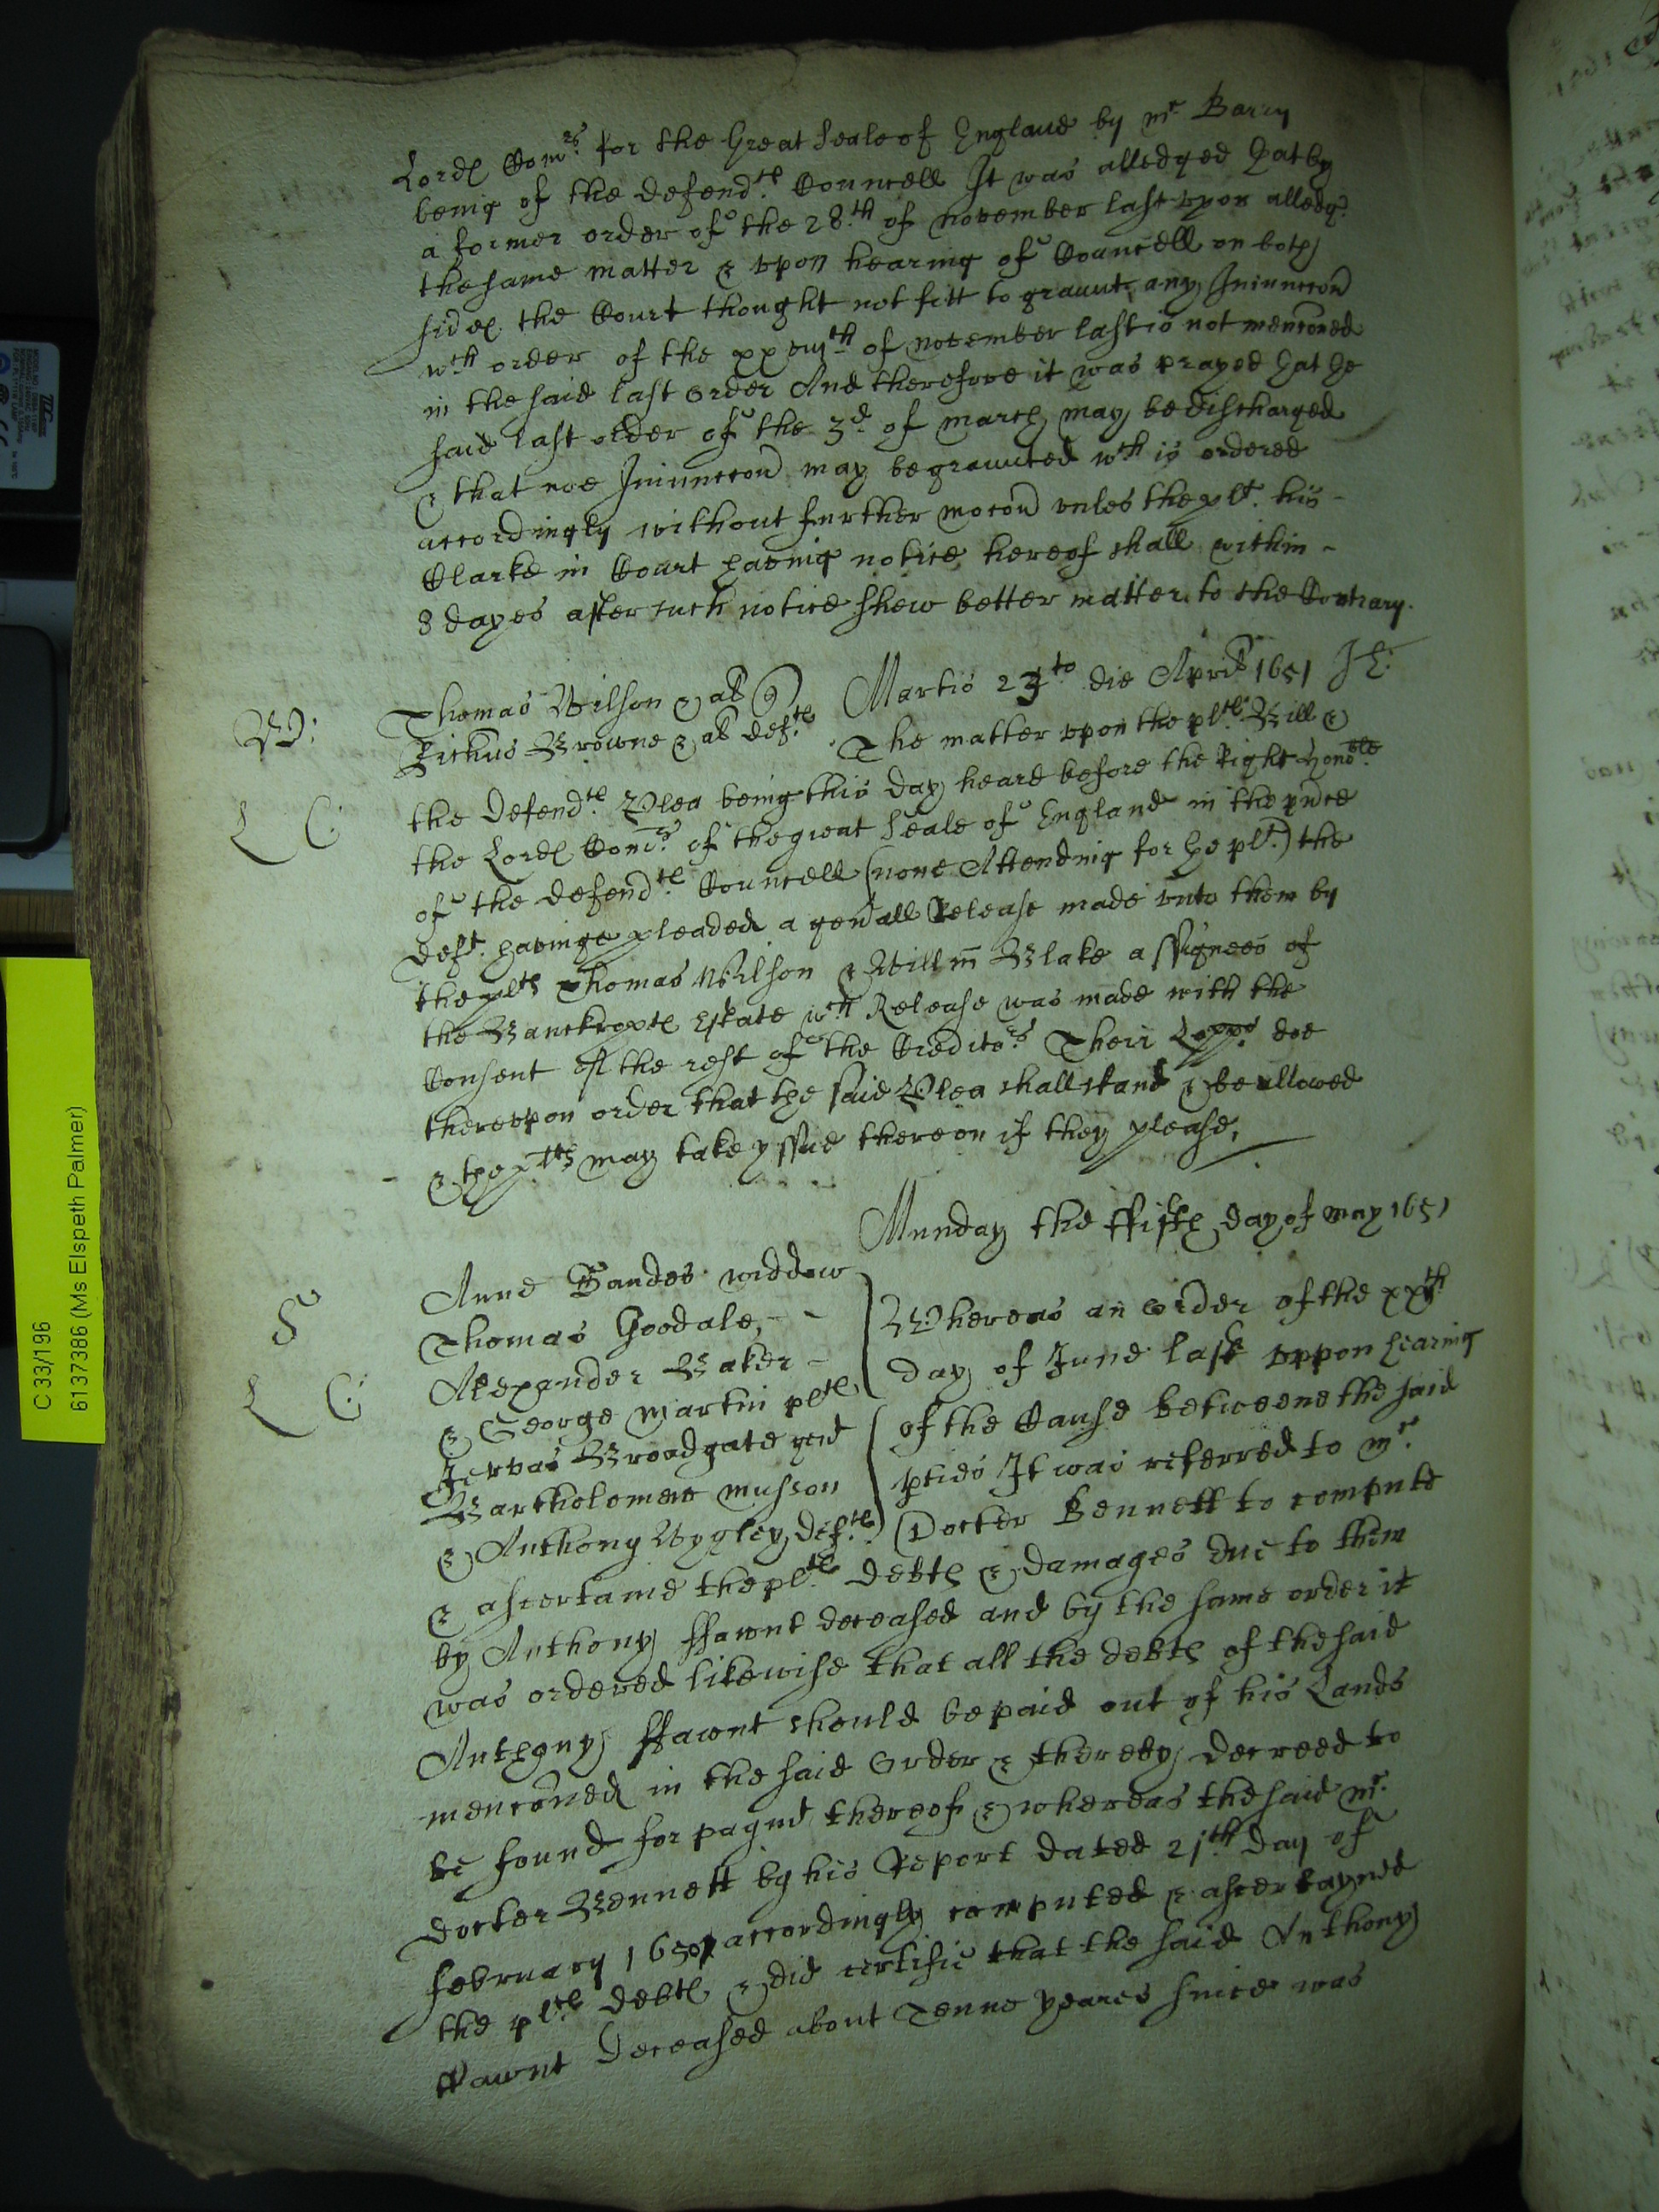 Lords Comrs. for the Great Seale of England by mr Barry
being of the defendts. Councell It was alledged hat by
a former order of the 28.th of november last vpon alledg.
the same matter & vpon hearing of Councell on both
sides the Court thought not fitt to graunt any Iniunccon
wch order of the xxviijth of november last is not menconed
in the said last order And therefore it was prayed hat he
said last order of the 3d of march may be discharged
& that noe Iniunccon may be graunted wch is ordered
accordingly without further mocon vnles the plt. his -
Clarke in Court haveing notice hereof shall within -
8 dayes after such notice shew better matter to the Contrary.
Martis 2 to die Aprilis 1651
W:
Thomas Wilson & al
Browne & al defts.
The matter vpon the plts. Bill &
L C:
the defendts. Plea being this day heard before the Right honoble
the Lords Comrs. of the great Seale of England in the pnce
of the defendts. Councell (none Attending for he plt.) the
deft. haveinge pleaded a genall Release made vnto them by
the plts Thomas Wilson & Willm Blake assignees of
the Banckrupts Estate wch Release was made with the
Consent of the rest of the Creditors. Their Lopps. doe
therevpon order that the said Plea shall stand & be allowed
& the plts may take yssue thereon if they please.
Munday the ffifth day of may 1651
S
L C:
Anne Sandes widdow
Thomas Goodale, -
Alexander Baker -
& George Martin plts
Jervas Broadgate gent
Bartholomew musson
& Anthony Wygley, defts.
Whereas an order of the xxth
day of June last vppon hearing
of the Cause betweene the said
pties It was referred to mr.
Docter Bennett to compute
& ascertaine the plts. debts & damages due to them
by Anthony ffawnt deceased and by the same order it
was ordered likewise that all the debts of the said
Anthony ffawnt should be paid out of his Lands
menconed in the said Order & thereby decreed to
be found for paymt thereof & whereas the said mr.
Docter Bennett by his Report dated 21th day of
february 1650 accordingly computed & ascertayned
the plts. debts & did certifie that the said Anthony
ffawnt deceased about Tenne yeares since was
C 33/196
6137386 (Ms Elspeth Palmer)